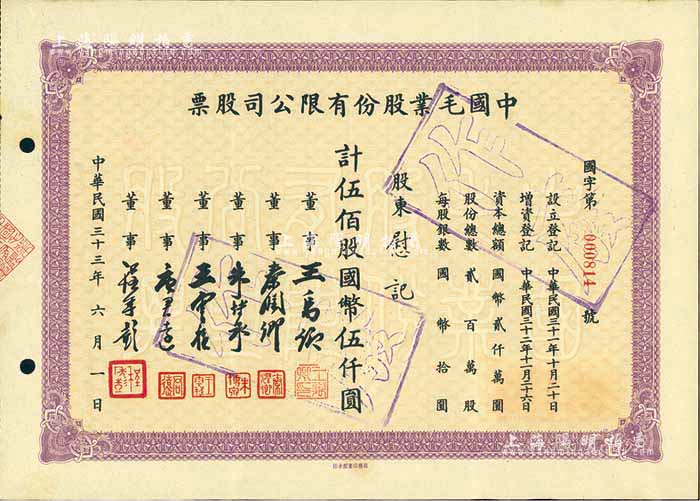 中國毛業股份有限公司股票
國字第 000814 號
設立登記 中華民國三十一年十月二十日
增資登記 中華民國三十二年十一月二十六日
資本總額 國幣貳仟萬圓
股份總數 貳百萬股
每股銀數 國幣拾圓
股東 慰記
計伍佰股國幣伍仟圓
董事
董事
董事
董事
董事
董事
中華民國三十三年 六 月 一 日
作廢
作廢
上海陽明拍賣
上海陽明拍賣
上海陽明拍賣